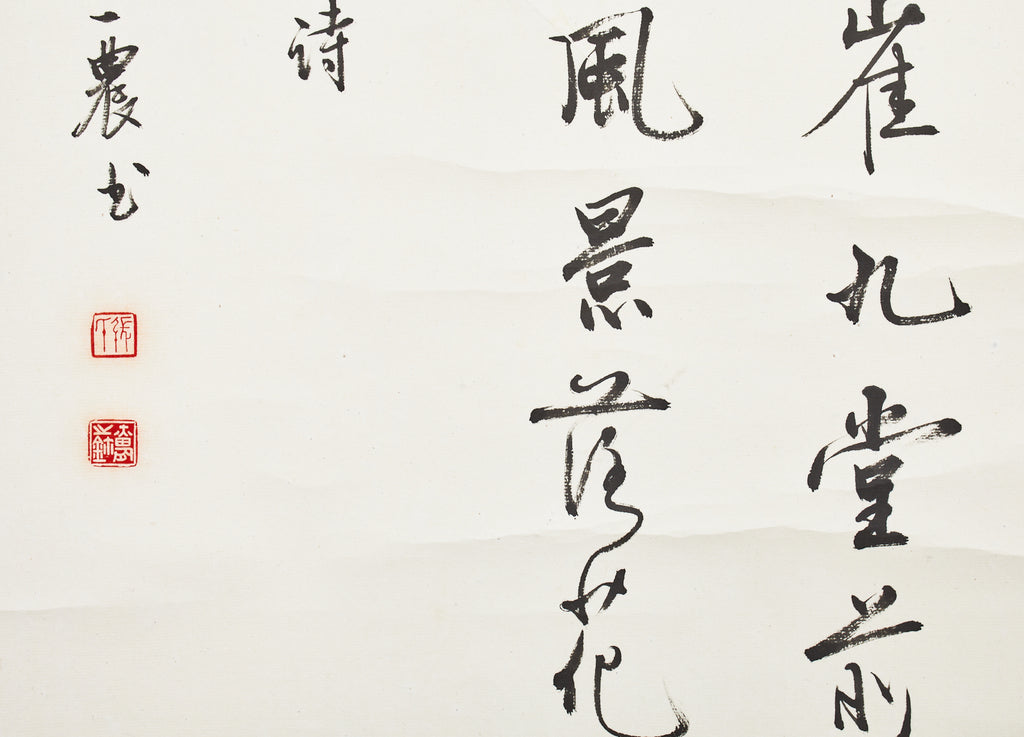 崔九堂前
風景落花
詩
一農书